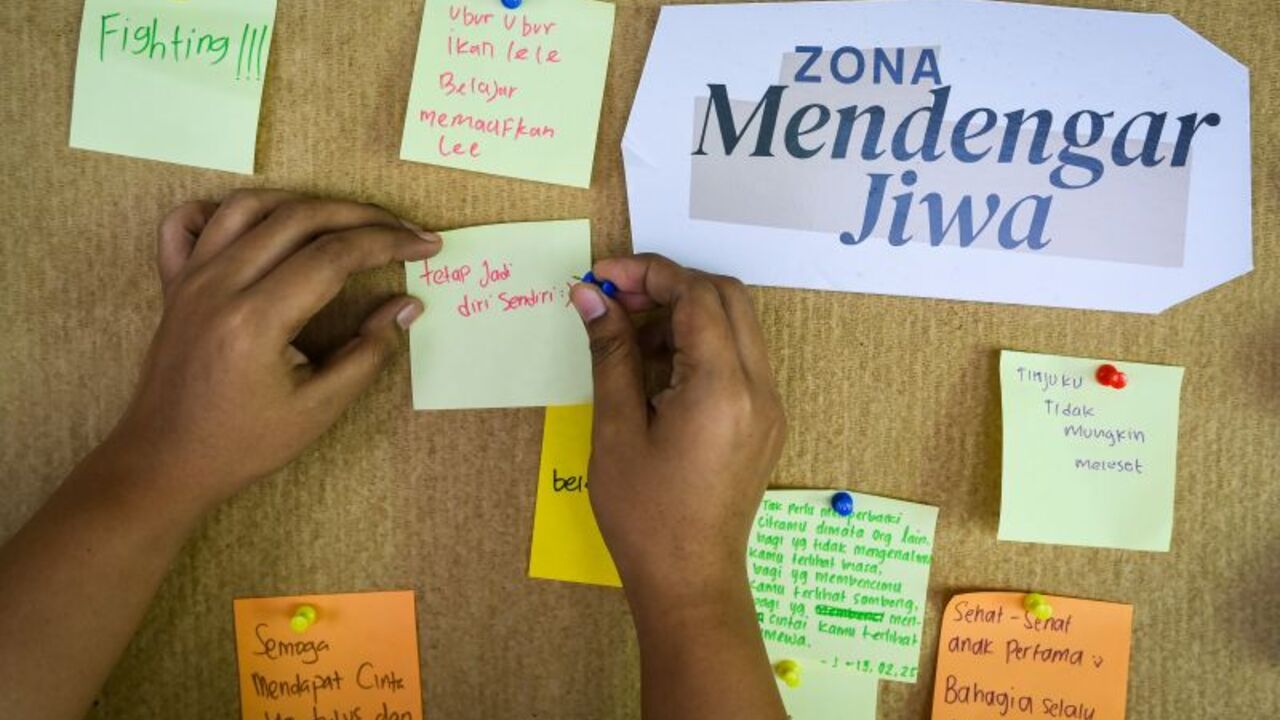 Fighting!!!
Ubur Ubur
Ikan lele
Belajar
memaafkan
Lee
ZONA
Mendengar
Jiwa
tetap Jadi
diri Sendiri :)
Tinjuku
Tidak
Mungkin
meleset
Tak perlu memperbaiki
citramu dimata org lain.
bagi yg tidak mengenalmu
kamu terlihat biasa,
bagi yg membencimu
kamu terlihat sombong,
bagi yg men-
cintai kamu terlihat
- J - 13,02,25
Semoga
Mendapat Cinta
dan
Sehat - Sehat
anak Pertama
Bahagia selalu